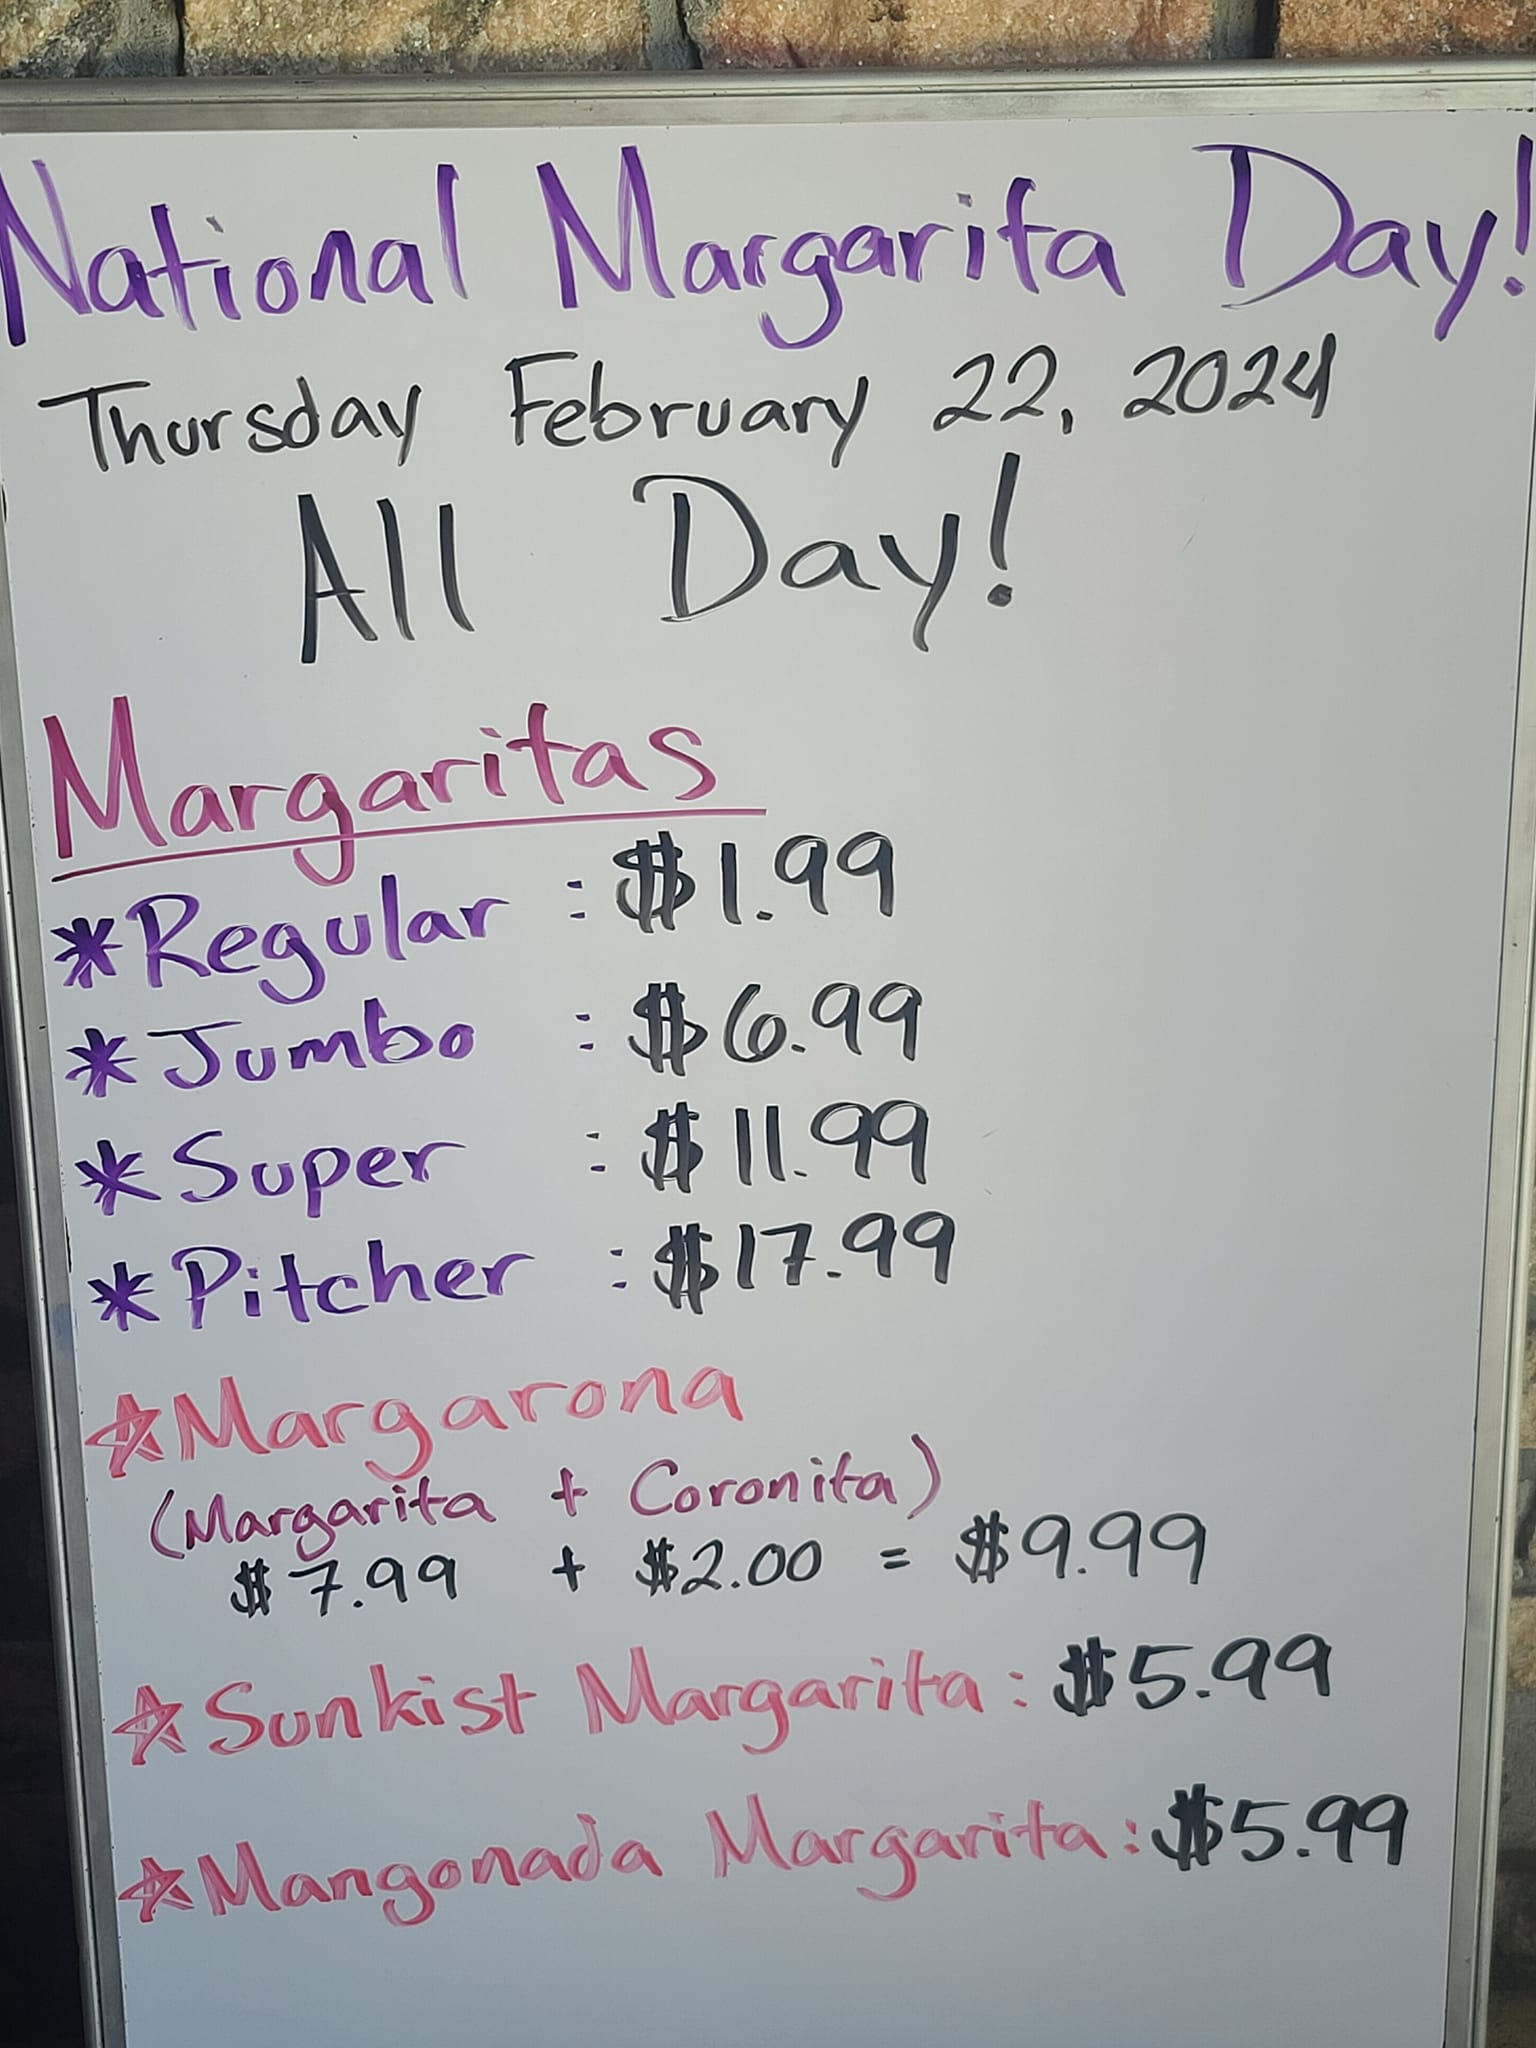 National Margarita Day!
Thursday February 22, 2024
All Day!
Margaritas
*Regular : $1.99
*Jumbo : $6.99
*Super : $11.99
*Pitcher : $17.99
☆Margarona
(Margarita + Coronita)
$7.99 + $2.00 = $9.99
☆Sunkist Margarita: $5.99
☆Mangonada Margarita: $5.99